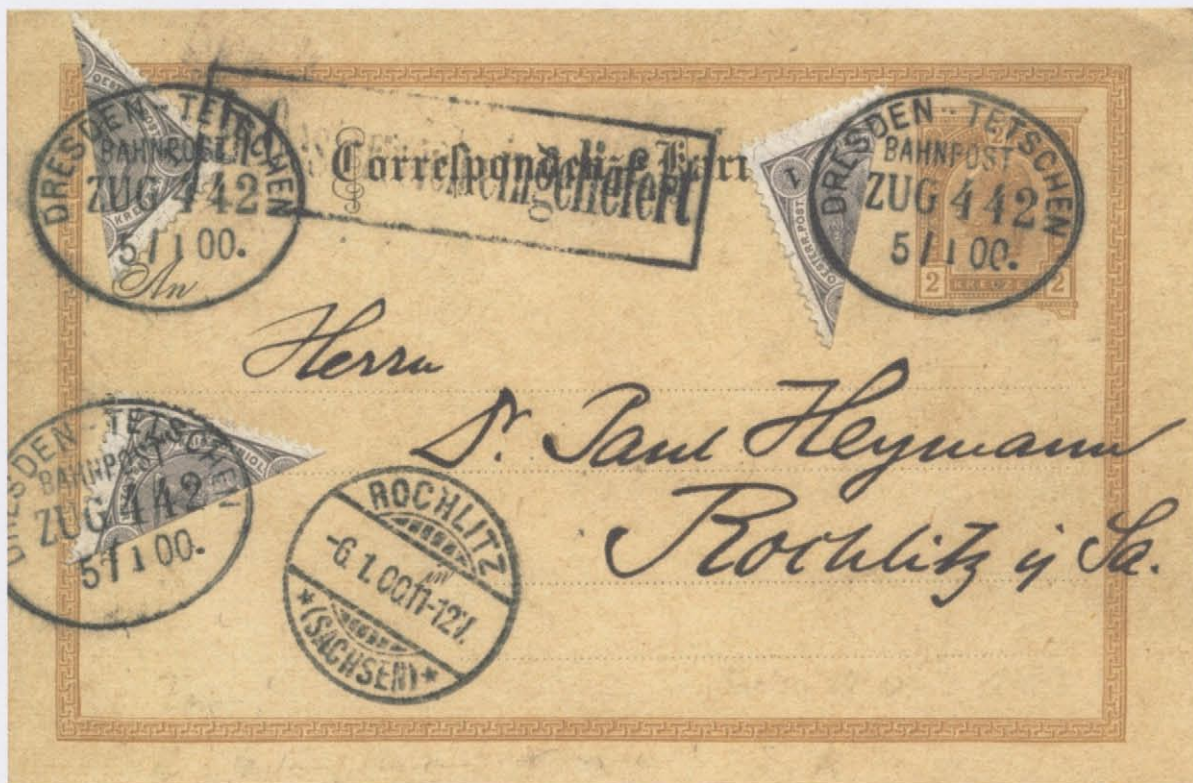 DRESDEN - TETSCHEN
BAHNPOST
ZUG 442
5/1 00.
Correspondenz-Karte
eingeliefert
OESTERR. POST
KREUZER
1
OESTERR. POST
DRESDEN - TETSCHEN
BAHNPOST
ZUG 442
5/1 00.
2
KREUZER
2
An
Herrn
Dr. Paul Heymann
Rochlitz i/ Sa.
DRESDEN - TETSCHEN
BAHNPOST
ZUG 442
5/1 00.
ROCHLITZ
-6.1.00.11-12V.
*(SACHSEN)*